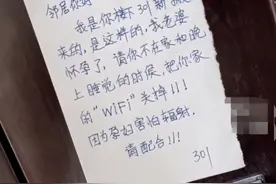 邻居你好
我是你楼下301新搬
来的,是这样的,我老婆
怀孕了,请你不在家和晚
上睡觉的时候,把你家
的“WiFi”关掉!!!
因为孕妇害怕辐射,
请配合!!!
301